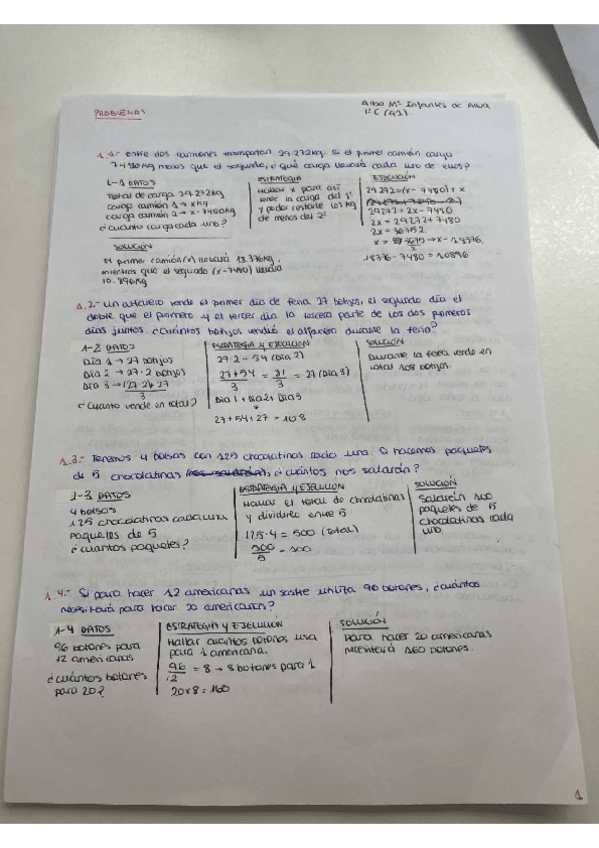 PROBLEMAS
Alba Mª Infantes de Alba
1ºC (G1)
1.1- entre dos camiones transportan 29.272kg. Si el primer camión carga
7480kg menos que el segundo, ¿qué carga llevará cada uno de ellos?
1-1 DATOS
Total de carga 29.272kg
carga camión 1 → x kg
carga camión 2 → x-7480kg
¿cuánto carga cada uno?
ESTRATEGIA
Hallar x para así
tener la carga del 1º
y poder restarle los kg
de menos del 2º
EJECUCIÓN
29272=(x-7480)+x
29272=2x-7480
2x=29272+7480
2x=36752
2
→x=18376
18376-7480=10896
SOLUCIÓN
El primer camión(x) llevará 18.376kg,
mientras que el segundo (x-7480) llevará
10.896kg
1.2- un alfarero vende el primer día de feria 27 botijos, el segundo día el
doble que el primero y el tercer día la tercera parte de los dos primeros
días juntos. ¿cuántos botijos vendió el alfarero durante la feria?
1-2 DATOS
Día 1 → 27 botijos
Día 2 → 27·2 botijos
Día 3 → (27·2)+27
3
¿Cuánto vende en total?
ESTRATEGIA y EJECUCIÓN
27·2=54 (Día 2)
27+54 = 81 = 27 (Día 3)
3 3
Día 1 + Día 2 + Día 3
27+54+27=108
SOLUCIÓN
Durante la feria vende en
total 108 botijos.
1.3- Tenemos 4 bolsas con 125 chocolatinas cada una. Si hacemos paquetes
de 5 chocolatinas, ¿cuántos nos saldrán?
1-3 DATOS
4 bolsas
125 chocolatinas cada una
Paquetes de 5
¿cuántos paquetes?
ESTRATEGIA y EJECUCIÓN
Hallar el total de chocolatinas
y dividirlo entre 5.
125·4=500 (total)
500 = 100
5
SOLUCIÓN
Saldrán 100
paquetes de 5
chocolatinas cada
uno.
1.4- Si para hacer 12 americanas un sastre utiliza 96 botones, ¿cuántos
necesitará para hacer 20 americanas?
1-4 DATOS
96 botones para
12 americanas
¿cuántos botones
para 20?
ESTRATEGIA y EJECUCIÓN
Hallar cuántos botones usa
para 1 americana.
96 = 8 → 8 botones para 1
12
20x8=160
SOLUCIÓN
Para hacer 20 americanas
necesitará 160 botones.
1